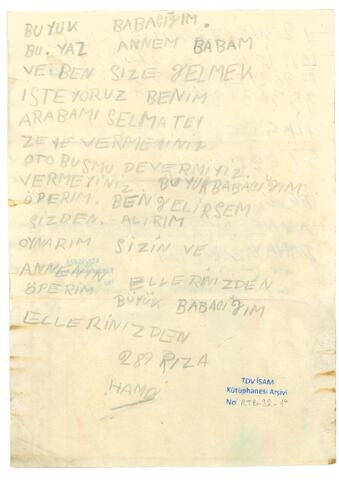 BÜYÜK BABACIĞIM.
BU. YAZ ANNEM BABAM
VE BEN SİZE GELMEK
İSTEYORUZ BENİM
ARABAMI SELMATEY
ZEYE VERMEYİNİZ
OTOBUSMU DEVERMİYİZ.
VERMEYİNİZ. BÜYÜKBABACIĞIM
ÖPERİM. BEN GELİRSEM
SİZDEN. ALIRIM
OYNARIM SİZİN VE
ANNEMİN
ÖPERİM ELLERİNİZDEN
BÜYÜK BABACIĞIM
ELLERİNİZDEN
RIZA
HAMDİ
TDV İSAM
Kütüphanesi Arşivi
No: RTB-32-1a